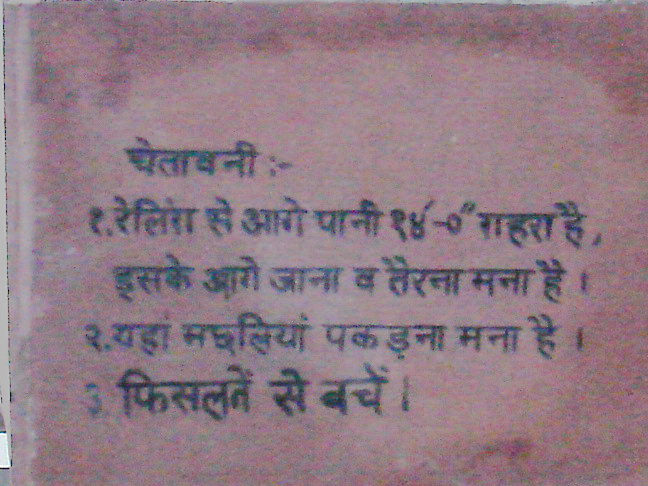 चेतावनी :-
१. रेलिंग से आगे पानी १४'-०" गहरा है,
इसके आगे जाना व तैरना मना है ।
२. यहां मछलियां पकड़ना मना है ।
३ फिसलनें से बचें ।